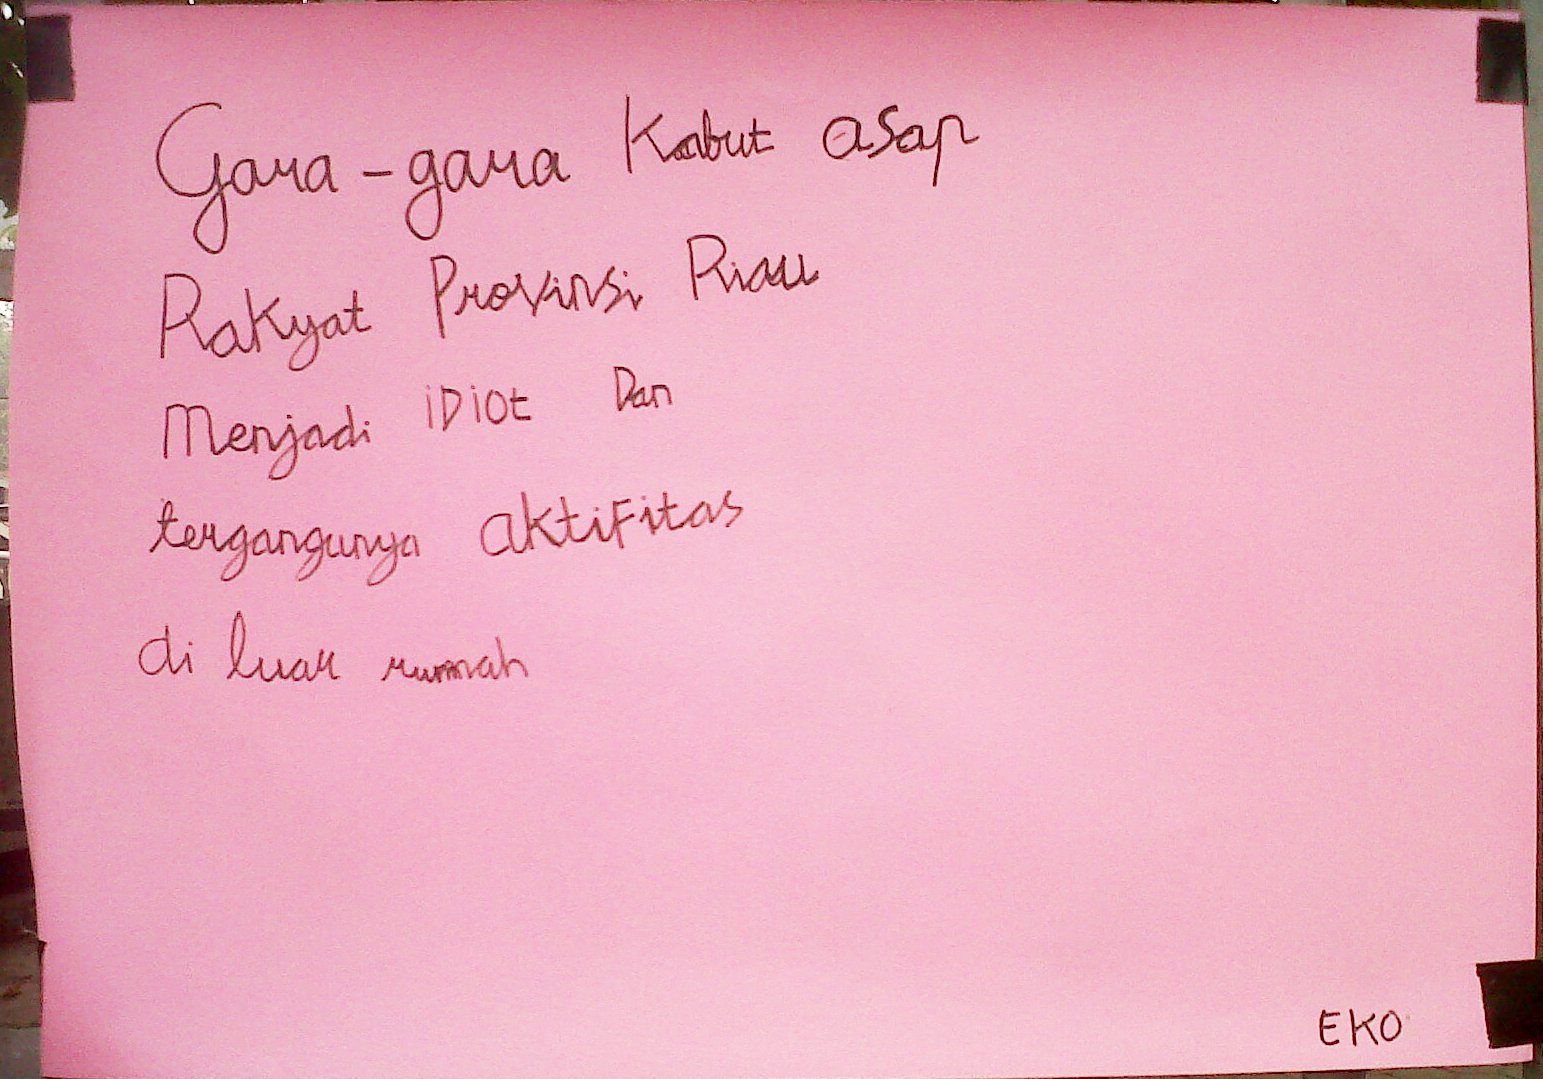 Gara-gara Kabut asap
Rakyat Provinsi Riau
Menjadi iDiot Dan
tergangunya aktiFitas
di luar rumah
EKO